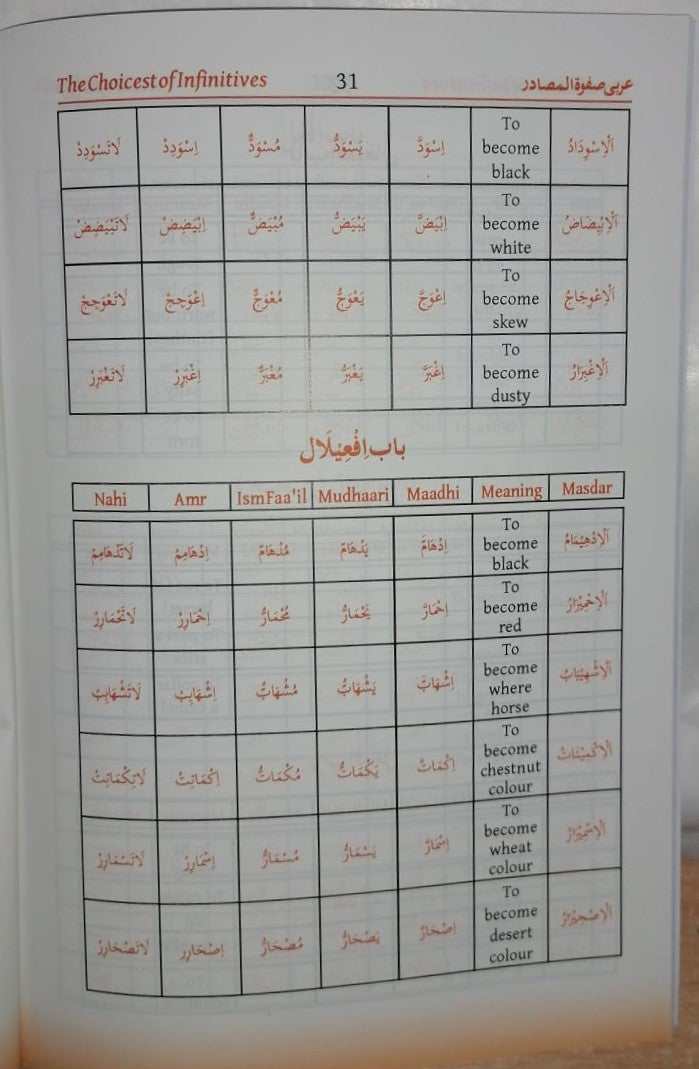 The Choicest of Infinitives 31 عربی صفوة المصادر
اَلْاِسْوِدَادُ To become black اِسْوَدَّ يَسْوَدُّ مُسْوَدٌّ اِسْوَدِدْ لَاتَسْوَدِدْ
اَلْاِبْيِضَاضُ To become white اِبْيَضَّ يَبْيَضُّ مُبْيَضٌّ اِبْيَضِضْ لَاتَبْيَضِضْ
اَلْاِعْوِجَاجُ To become skew اِعْوَجَّ يَعْوَجُّ مُعْوَجٌّ اِعْوَجِجْ لَاتَعْوَجِجْ
اَلْاِغْبِرَارُ To become dusty اِغْبَرَّ يَغْبَرُّ مُغْبَرٌّ اِغْبَرِرْ لَاتَغْبَرِرْ
باب اِفْعِيْلَال
Masdar Meaning Maadhi Mudhaari IsmFaa'il Amr Nahi
اَلْاِدْهِيْمَامُ To become black اِدْهَامَّ يَدْهَامُّ مُدْهَامٌّ اِدْهَامِمْ لَاتَدْهَامِمْ
اَلْاِحْمِيْرَارُ To become red اِحْمَارَّ يَحْمَارُّ مُحْمَارٌّ اِحْمَارِرْ لَاتَحْمَارِرْ
اَلْاِشْهِيْبَابُ To become where horse اِشْهَابَّ يَشْهَابُّ مُشْهَابٌّ اِشْهَابِبْ لَاتَشْهَابِبْ
اَلْاِكْمِيْتَاتُ To become chestnut colour اِكْمَاتَّ يَكْمَاتُّ مُكْمَاتٌّ اِكْمَاتِتْ لَاتَكْمَاتِتْ
اَلْاِسْمِيْرَارُ To become wheat colour اِسْمَارَّ يَسْمَارُّ مُسْمَارٌّ اِسْمَارِرْ لَاتَسْمَارِرْ
اَلْاِصْحِيْرَارُ To become desert colour اِصْحَارَّ يَصْحَارُّ مُصْحَارٌّ اِصْحَارِرْ لَاتَصْحَارِرْ